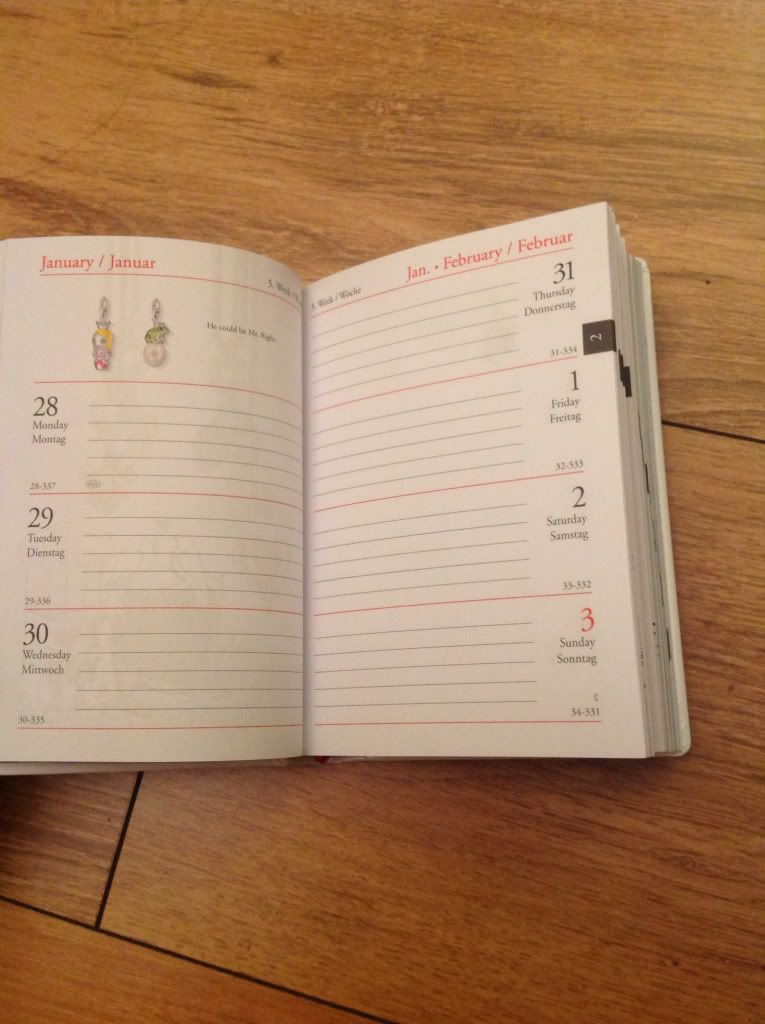 January / Januar
5. Week / Wo
He could be Mr. Right.
28
Monday
Montag
28-337
29
Tuesday
Dienstag
29-336
30
Wednesday
Mittwoch
30-335
Jan. • February / Februar
5. Week / Woche
31
Thursday
Donnerstag
31-334
2
1
Friday
Freitag
32-333
2
Saturday
Samstag
33-332
3
Sunday
Sonntag
34-331